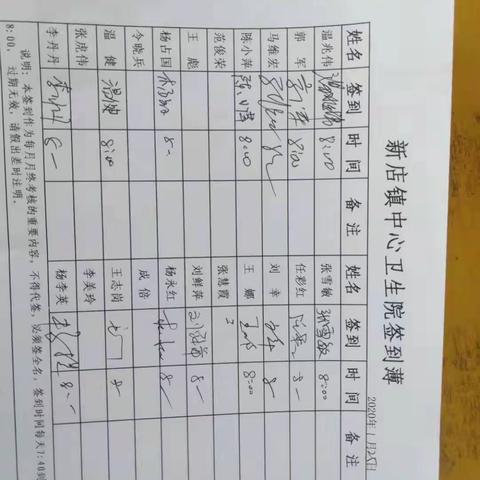 新店镇中心卫生院签到薄
2020年1月25日
姓名 签到 时间 备注 姓名 签到 时间 备注
温兆伟 8:00 张雪敏 张雪敏 8:00
郭军 郭军 8:00 任彩红
马维宏 刘幸
陈小萍 陈小萍 8:00 王娜 王娜 8:00
范俊荣 张慧霞
王彪 刘鲜萍 刘鲜萍 8
杨占国 杨永红 8
令晓兵 成倍
温健 温健 8:00 王志岗
张虎伟 李美玲
李丹丹 杨李英
说明:本签到作为每月月终考核的重要内容,不得代签,必须签全名,签到时间每天7:40到
8:00,过期无效,请假出差时注明。